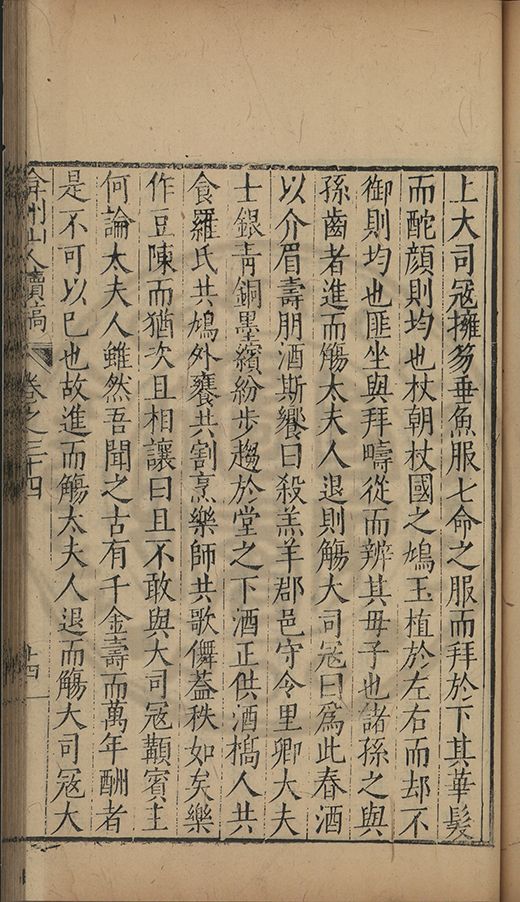 上大司寇擁笏垂魚服七命之服而拜於下其華髮
而酡顏則均也杖朝杖國之鳩玉植於左右而却不
御則均也匪坐與拜疇從而辨其母子也諸孫之與
孫齒者進而觴太夫人退則觴大司寇曰爲此春酒
以介眉壽朋酒斯饗曰殺羔羊郡邑守令里卿大夫
士銀青銅墨繽紛步趨於堂之下酒正供酒槁人共
食羅氏共鳩外饔共割烹樂師共歌儛葢秩如矣樂
作豆陳而猶次且相讓曰且不敢與大司寇顓賓主
何論太夫人雖然吾聞之古有千金壽而萬年酬者
是不可以已也故進而觴太夫人退而觴大司寇大
弇州山人續稿 卷之三十四 十四